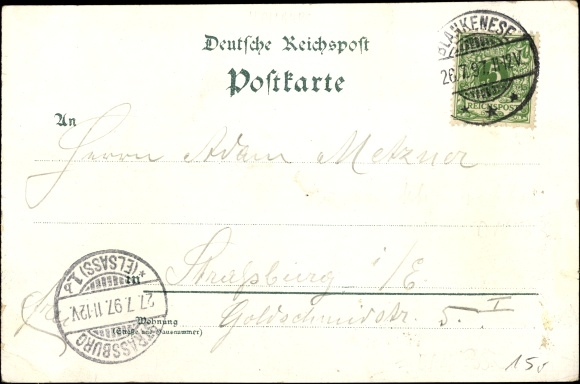 Deutsche Reichspost
Postkarte
BLANKENESE
26.7.97.11-12V.
5
REICHSPOST
An
Herrn Adam Metzner
in Straßburg i/E
Wohnung
(Straße und Hausnummer)
Goldschmidstr. 5. I
STRASSBURG
27.7.97.11-12V.
(ELSASS) 1
15,